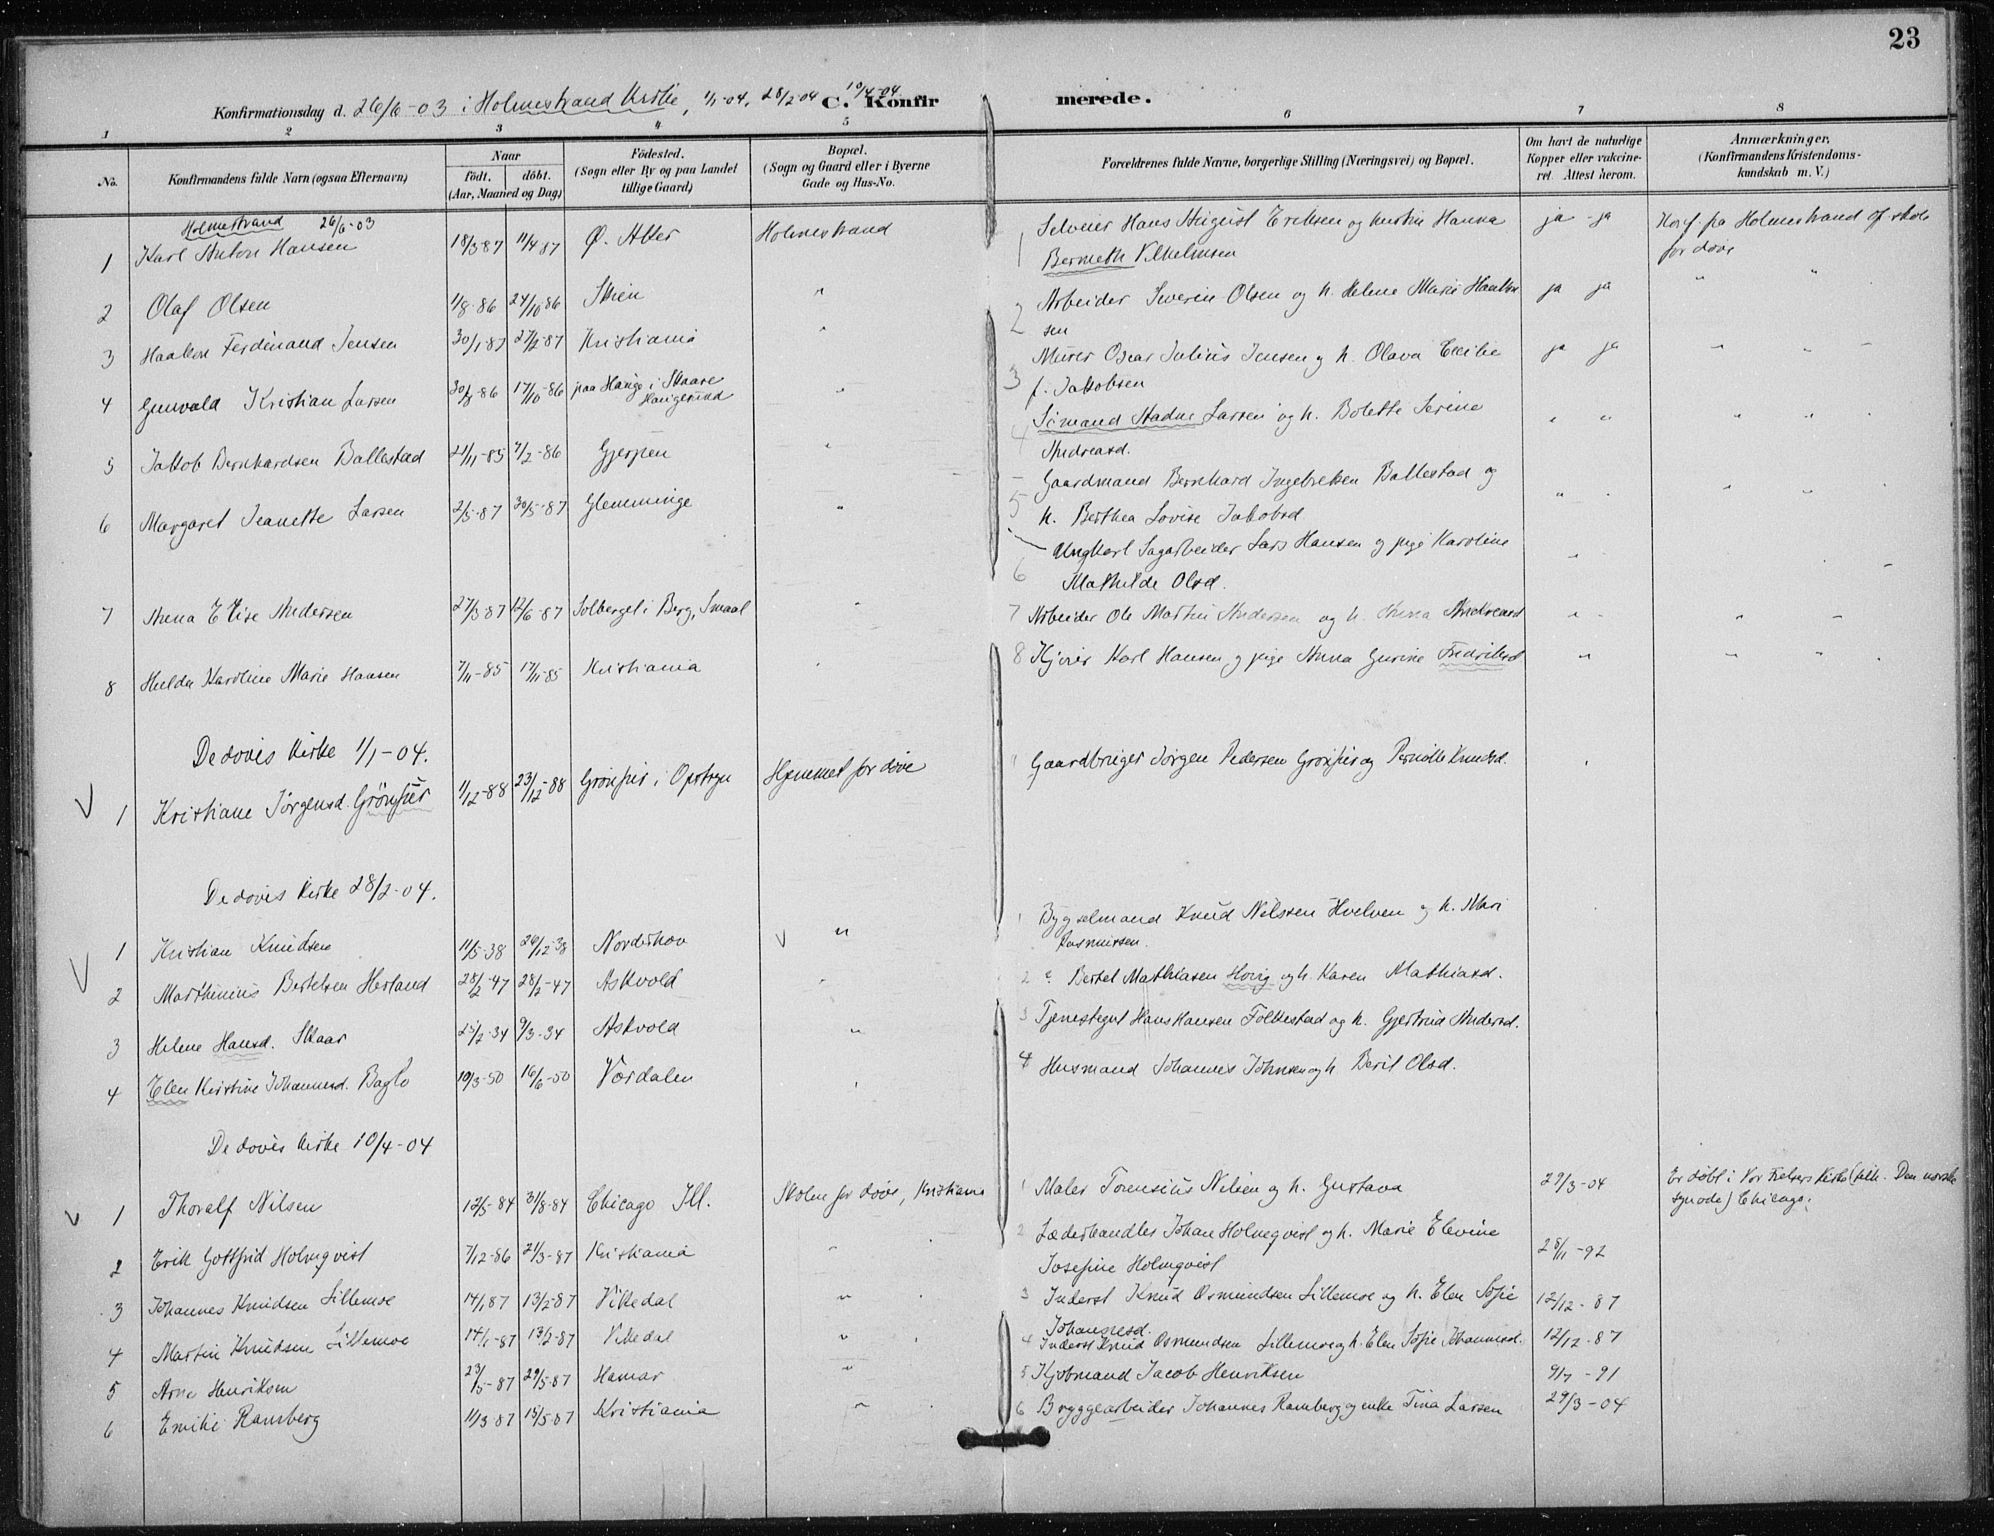 23
Konfirmationsdag d. 26/6-03 i Holmestrand Kirke, 1/1-04, 28/2-04 10/4-04 C. Konfirmerede.
1 2 3 4 5 6 7 8
No. Konfirmandens fulde Navn (ogsaa Efternavn) Naar født. døbt. (Aar, Maaned og Dag) Fødested. (Sogn eller By og paa Landet tillige Gaard) Bopæl. (Sogn og Gaard eller i Byerne Gade og Hus-No. Forældrenes fulde Navne, borgerlige Stilling (Næringsvei) og Bopæl. Om havt de naturlige Kopper eller vakcineret. Attest herom. Anmærkninger, (Konfirmandens Kristendomskundskab m. V.)
Holmestrand 26/6-03
1 Karl Anton Hansen 18/3 87 11/4 87 Ø. Aker Holmestrand 1 Hans August Eriksen og hustru Hanna ja - ja Konf. fra Holmestrand off. skole
Berneth Vilhelmsen for døve
2 Olaf Olsen 1/8-86 24/10-86 Skien " 2 Arbeider Severin Olsen og h. Helene Marie ja ja " "
sen
3 Haakon Ferdinand Jensen 30/1-87 27/2-87 Kristiania " 3 Murer Oscar Julius Jensen og h. Olava Cecilie ja ja " " "
f. Jakobsen
4 Gunvald Kristian Larsen 30/8-86 17/10-86 paa Hauge i Skaare
Haugesund " 4 Sømand Larsen og h. Bolette Serine " " " " "
Andreasd.
5 Jakob Bernhardsen Ballestad 21/11-85 7/2-86 Gjerpen " 5 Gaardmand Bernhard Ingebretsen Ballestad og " " "
h. Berthea Lovise Jakobsd
6 Margaret Jeanette Larsen 2/5-87 30/5-87 Glemminge " 6 Ungkarl Sagarbeider Lars Hansen og pige Karoline "
Mathilde Olsd.
7 Anna Elise Andersen 27/3 87 12/6-87 Solberget i Berg, Smaal " 7 Arbeider Ole Martin Andersen og h. Anna Andreasd " " "
8 Hulda Karoline Marie Hansen 7/11-85 17/11-85 Kristiania " 8 Karl Hansen og pige Anna Gurine Fredriksd " " " "
De døves Kirke 1/1-04.
1 Kristiane Jørgensd. Grönfur 1/12-88 23/12-88 Grönfur i Opstryn Hjemmet for døve 1 Gaardbruger Jørgen Pedersen Grönfur og Pernille Knudsd.
De døves Kirke 28/2-04.
1 Kristian Knudsen 11/5-38 26/12-38 Norderhov " 1 Bygselmand Knud Nilssen Hvelven og h. Mari
Rasmussen.
2 Marthinius Bertelsen Herland 28/2-47 28/2-47 Askvold " 2 Bertel Mathiasen Hovig og h. Karen Mathiasd.
3 Helene Hansd. Skaar 25/2-34 9/3-34 Askvold " 3 Tjenestegut Hans Hansen Folkestad og h. Gjertrud Andersd.
4 Elen Kristine Johannesd. Baglo 10/3-50 16/6-50 Værdalen " 4 Husmand Johannes Johnsen og h Berit Olsd.
De døves kirke 10/4-04
1 Thoralf Nilsen 12/5-84 31/8-84 Chicago Ill. Skolen for døve, Kristiania 1 Maler Torensius Nilsen og h. Gustava 29/3-04 Er døbt i Vor Frelsers Kirke Den norske
synode) Chicago.
2 Erik Gottfrid Holmqvist 7/12-86 21/3-87 Kristiania " 2 Læderhandler Johan Holmqvist og h. Marie Elevine
Josefine Holmqvist 28/11-92
3 Johannes Knudsen Lillemoe 14/1 87 13/2-87 Vikedal " 3 Inderst Knud Osmundsen Lillemoe og h. Elen Sofie 12/12-87
Johannesd.
4 Martin Knudsen Lillemoe 14/1-87 13/2-87 Vikedal " 4 Inderst Knud Osmundsen Lillemoe og h. Elen Sofie Johannesd. 12/12-87
5 Arne Henriksen 23/5-87 29/5-87 Hamar " 5 Kjøbmand Jacob Henriksen 9/7-91
6 Emilie Ramberg 11/3 87 15/5-87 Kristiania " 6 Bryggearbeider Johannes Ramberg og enke Tina Larsen 29/3-04